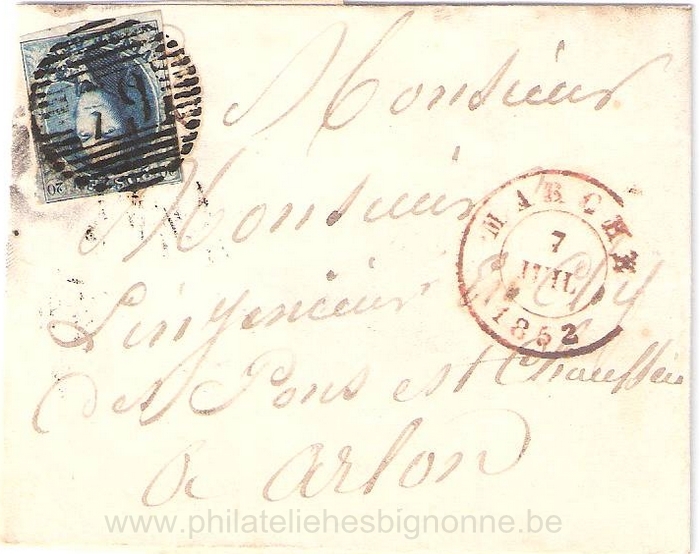 Monsieur
Monsieur
L'ingénieur En Chef
des Pons est Chaussée
a arlon
MARCHE
7
JUIL
1852
20
www.philateliehesbignonne.be